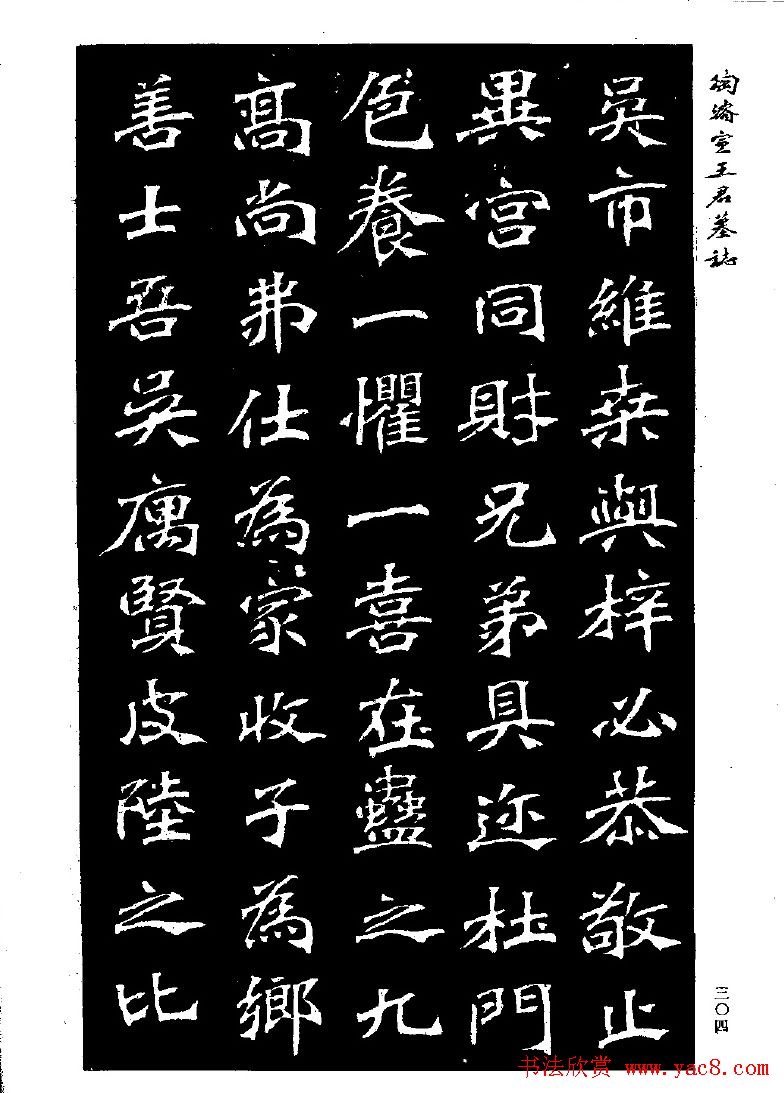 陶濬宣王君墓誌
吳市維桒與梓必恭敬止
異宮同財兄弟具迩杜門
色養一懼一喜在蠱之九
高尚弗仕為家收子為鄉
善士吾吳厲賢皮陸之比
三〇四
书法欣赏 www.yac8.com